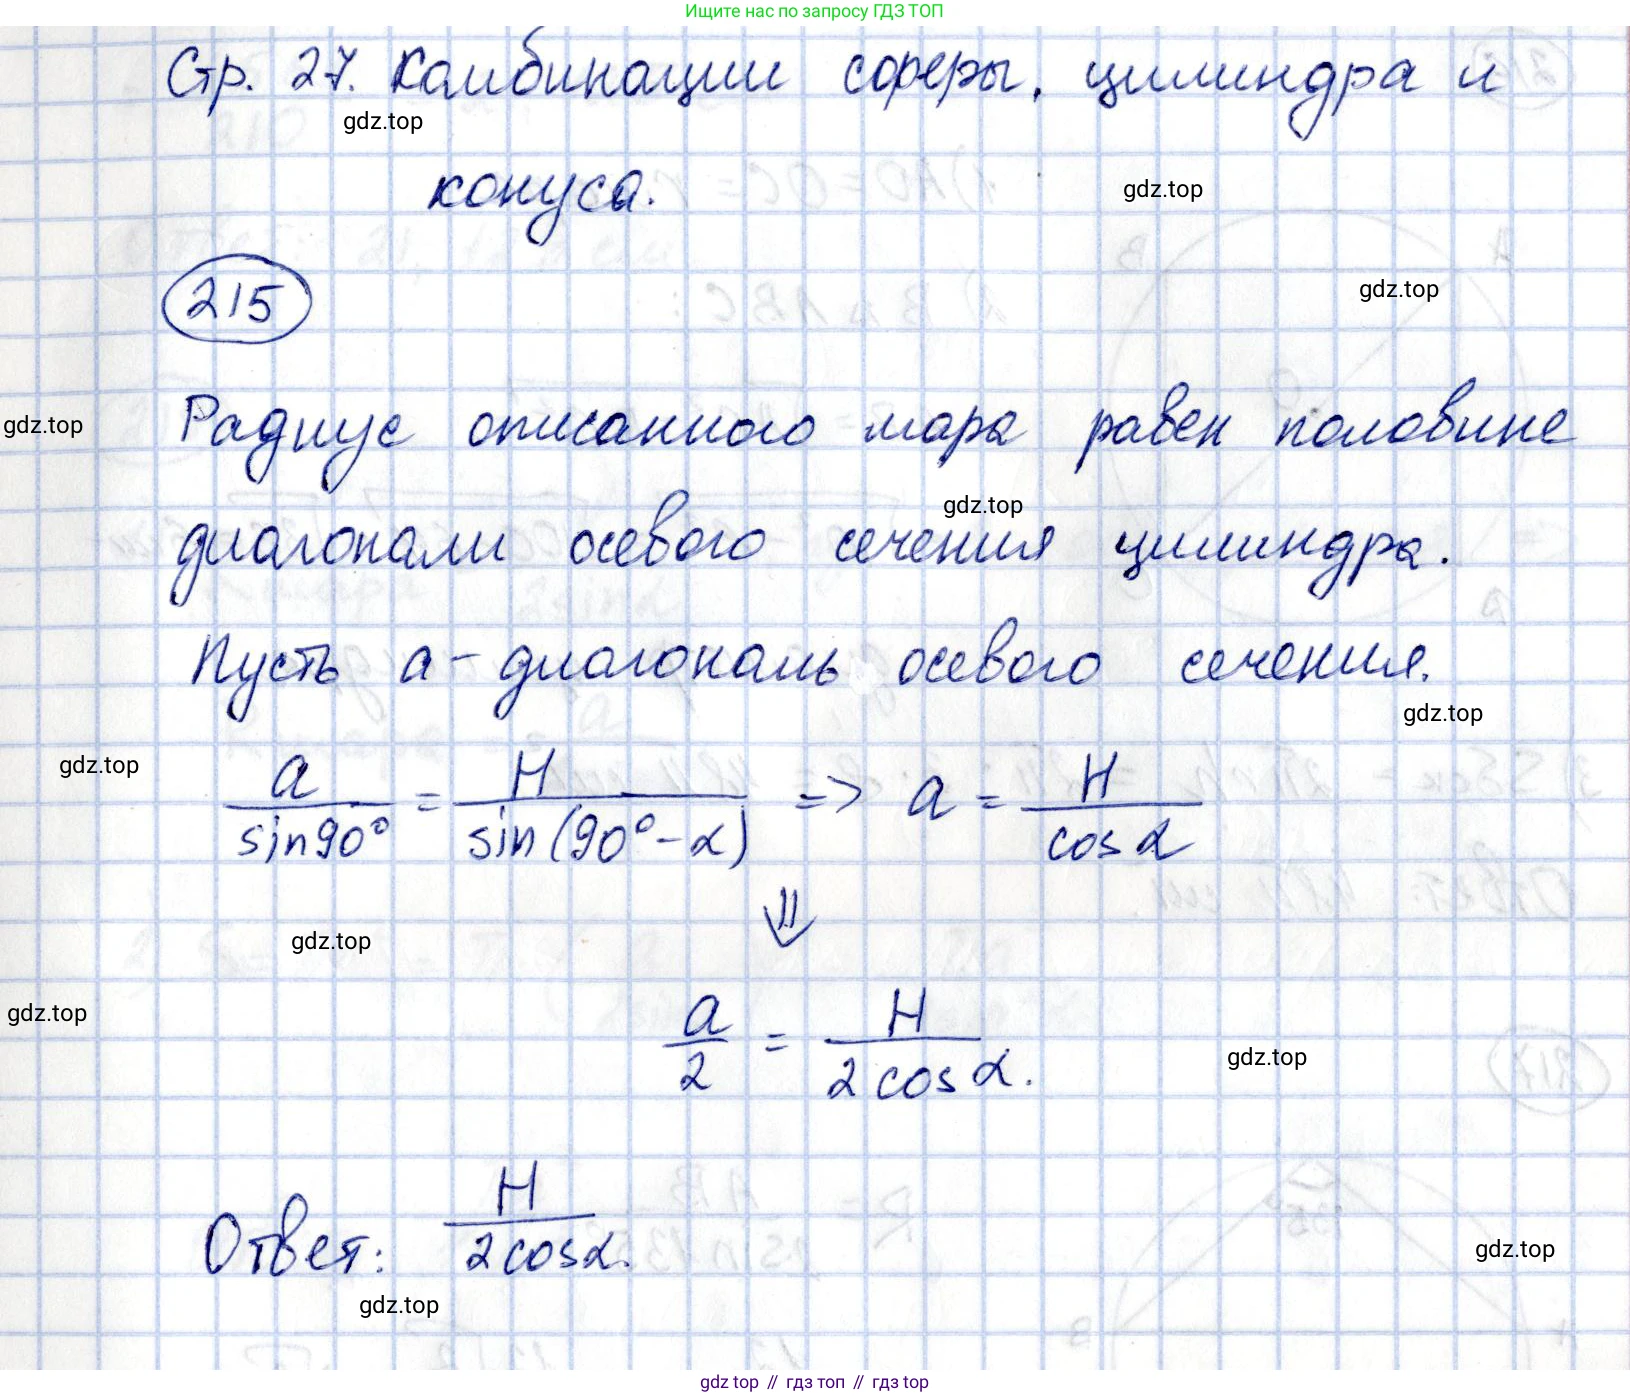 Ищите нас по запросу ГДЗ ТОП
Стр. 27. Комбинации сферы, цилиндра и
gdz.top
конуса.
gdz.top
215
gdz.top
Радиус описанного шара равен половине
gdz.top
gdz.top
диагонали осевого сечения цилиндра.
Пусть a - диагональ осевого сечения.
gdz.top
gdz.top
a/sin90° = H/sin(90°-α) => a = H/cosα
⇓
gdz.top
gdz.top
a/2 = H/2cosα.
gdz.top
Ответ: H/2cosα.
gdz.top
gdz.top
gdz.top // гдз топ // гдз top